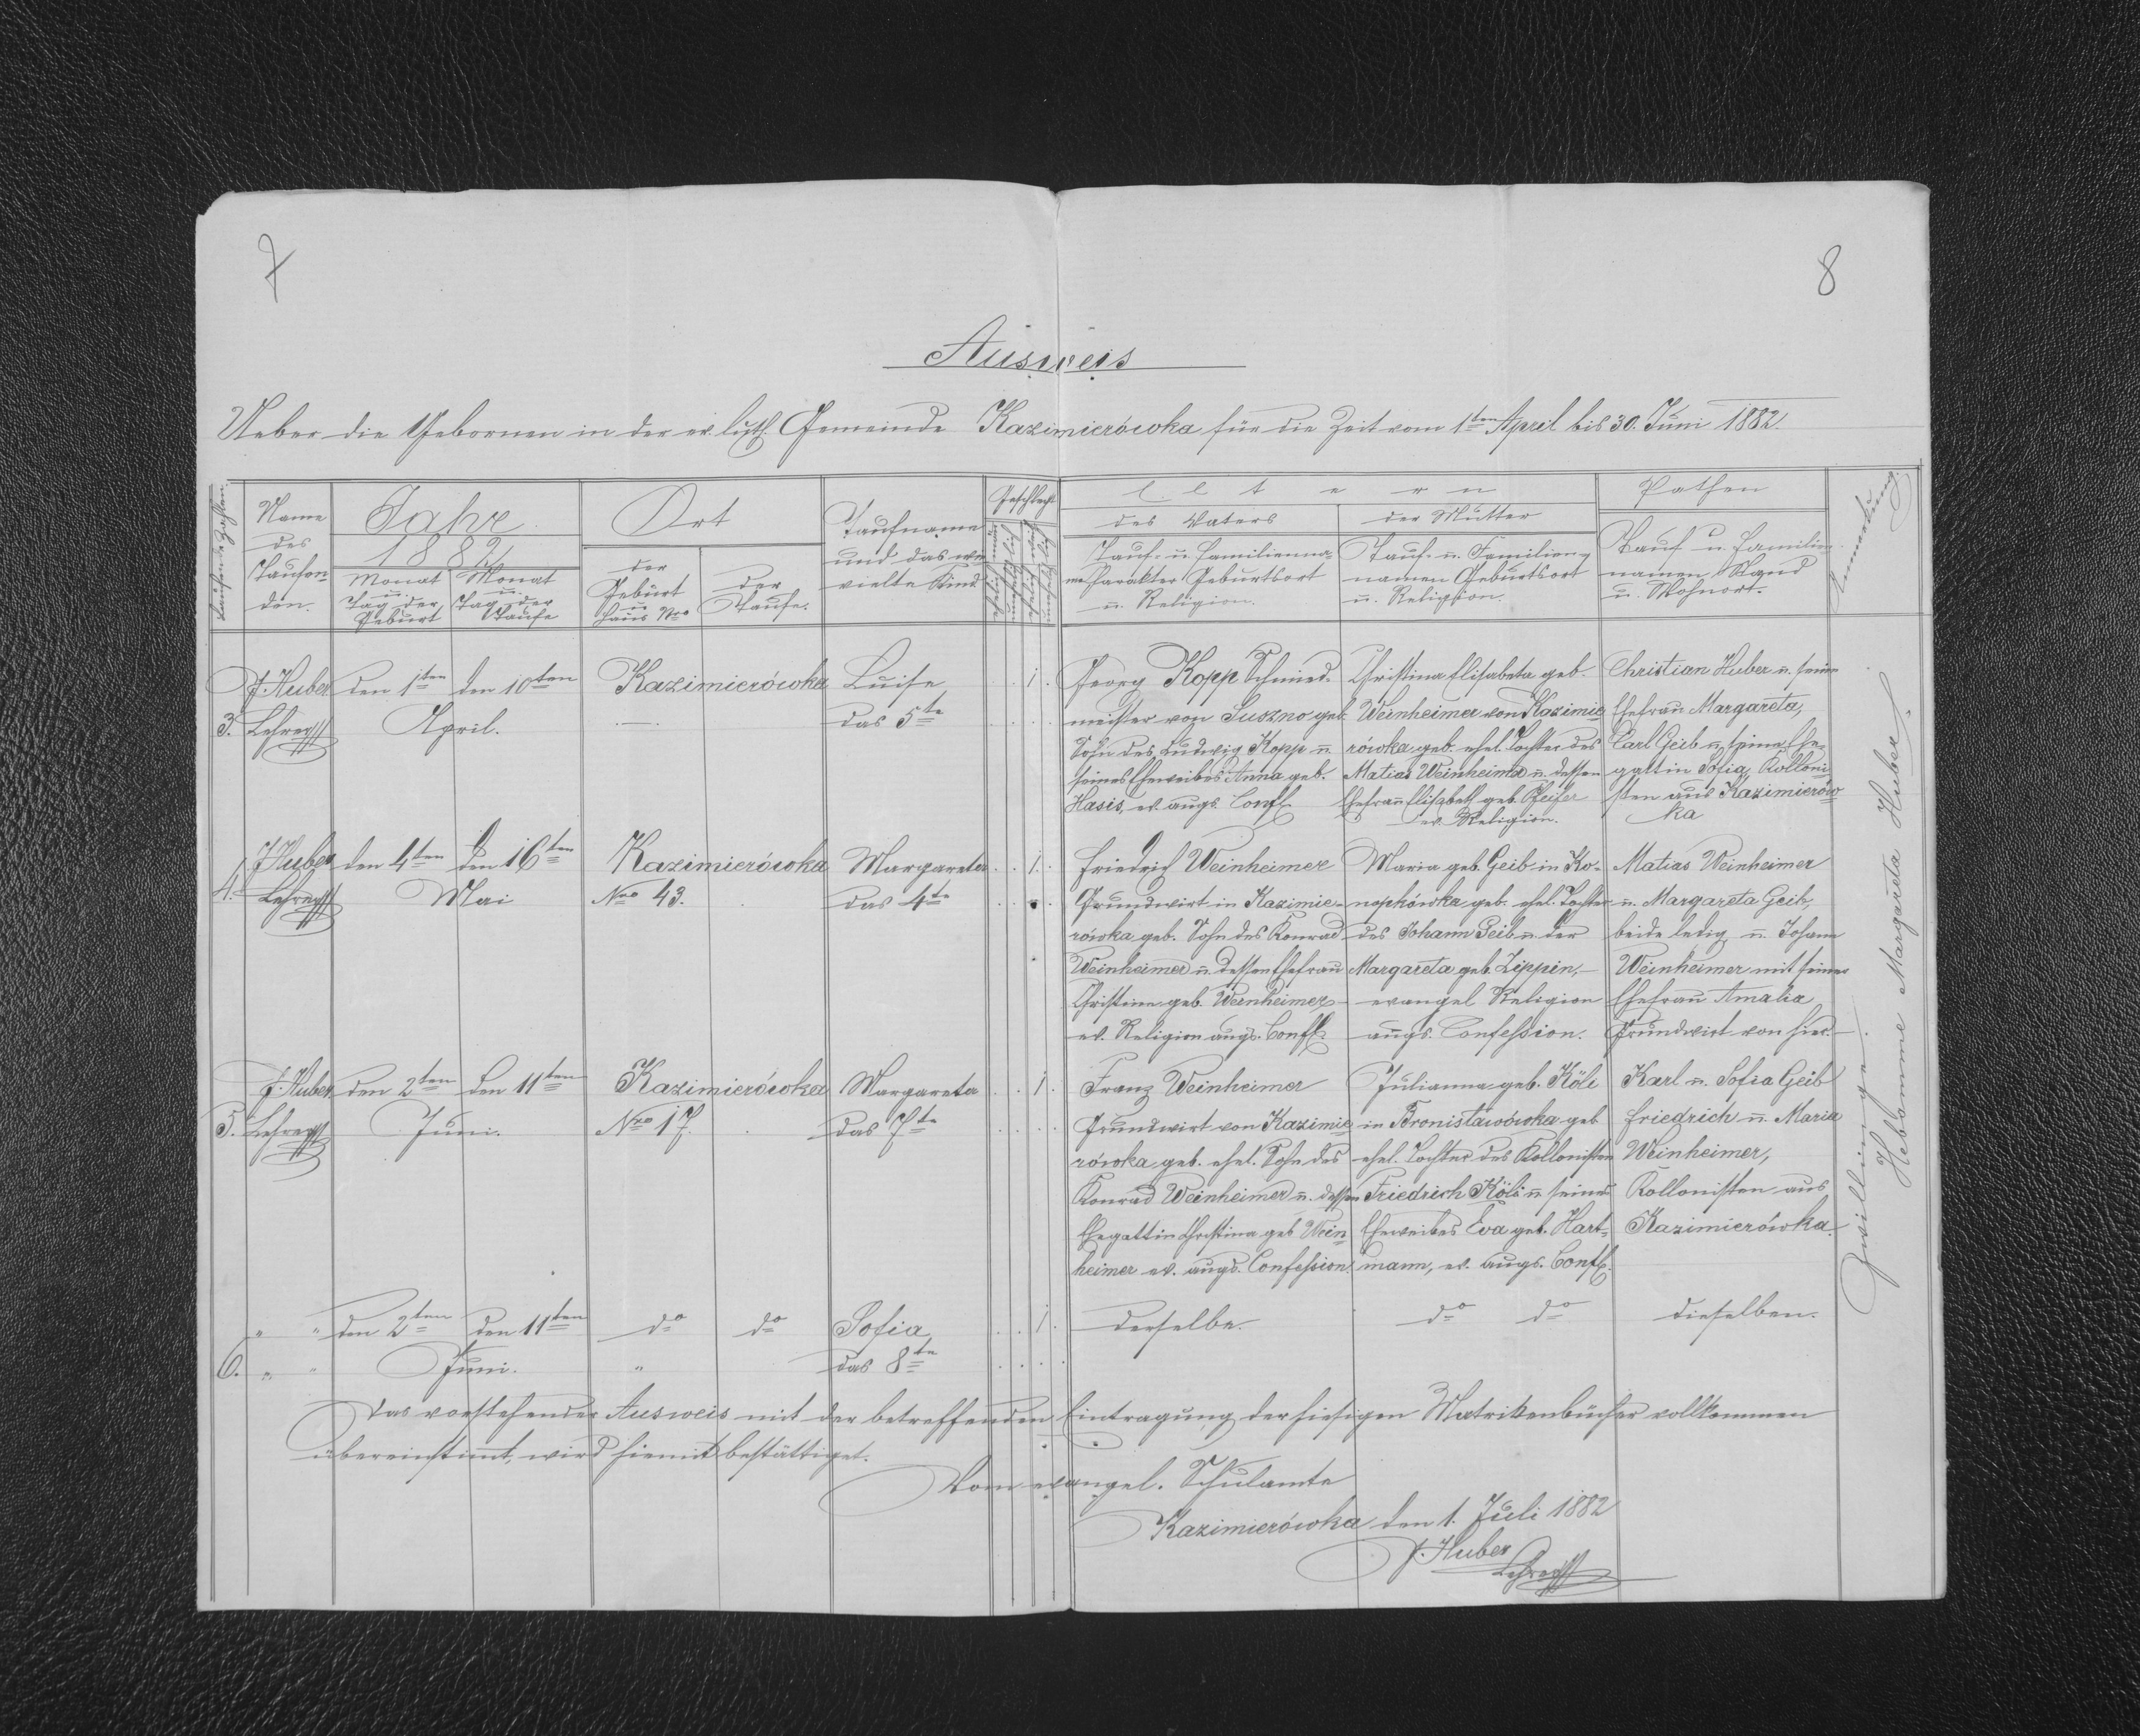 7
8
Ausweis
Ueber die Gebornen in der ev. luth. Gemeinde Kazimierówka für die Zeit vom 1ten April bis 30. Juni 1882.
Laufende Zahlen.
Name des Taufenden.
Jahr 1882
Monat u. Tag der Geburt
Monat u. Tag der Taufe
Ort
der Geburt u. Haus Nro
der Taufe.
Taufname und das wievielte Kind
Geschlecht
Eltern
des Vaters
Tauf- u. Familienname Charakter Geburtsort u. Religion.
der Mutter
Tauf- u. Familiennamen Geburtsort u. Religion.
Pathen
Tauf u. Familiennamen Stand u. Wohnort.
Anmerkung.
3.
J. Huber
Lehrer
den 1ten
den 10ten
April.
Kazimierówka
—
Luise
das 5te
1.
Georg Kopp Schmied-
meister von Suszno geb.
Sohn des Ludwig Kopp u.
seines Eheweibes Anna geb.
Hasis, ev. augs. Conf.
Christina Elisabeta geb.
Weinheimer von Kazimie
rówka geb. ehel. Tochter des
Matias Weinheimer u. dessen
Ehefrau Elisabeth geb. Pfeifer
ev. Religion.
Christian Huber u. seine
Ehefrau Margareta,
Carl Geib u. seine Ehe-
gattin Sofia, Kolloni
sten aus Kazimierów
ka
4.
J. Huber
Lehrer
den 4ten
den 16ten
Mai
Kazimierówka
Nro 43.
Margareta
das 4te
1.
Friedrich Weinheimer
Grundwirt in Kazimie-
rówka geb. Sohn des Konrad
Weinheimer u. dessen Ehefrau
Christine geb. Weinheimer
ev. Religion augs. Conf.
Maria geb. Geib in Ko-
nopkówka geb. ehel. Tochter
des Johann Geib u. der
Margareta geb. Zippin,
evangel Religion
augs. Confession.
Matias Weinheimer
u. Margareta Geib,
beide ledig u. Johann
Weinheimer mit seiner
Ehefrau Amalia
Grundwirt von hier.
5.
J. Huber
Lehrer
den 2ten
den 11ten
Juni.
Kazimierówka
Nro 17.
Margareta
das 7te
1.
Franz Weinheimer
Grundwirt von Kazimie
rówka geb. ehel. Sohn des
Konrad Weinheimer u. dessen
Ehegattin Christina geb Wein
heimer ev. augs. Confession.
Julianna geb. Köli
in Bronisławówka geb
ehel. Tochter des Kollonisten
Friedrich Köli u. seines
Eheweibes Eva geb. Hart-
mann, ev. augs. Conf.
Karl u. Sofia Geib
Friedrich u. Maria
Weinheimer,
Kollonisten aus
Kazimierówka.
6.
" "
" "
den 2ten
den 11ten
Juni.
do
do
"
Sofia,
das 8te
1.
derselbe.
do do
dieselben.
Zwillinge.
Hebamme Margareta Huber.
Das vorstehender Ausweis mit der betreffenden Eintragung der hiesigen Matrikenbücher vollkommen
übereinstimmt, wird hiemit bestättiget.
Vom evangel. Schulamte
Kazimierówka den 1. Juli 1882
J. Huber
Lehrer